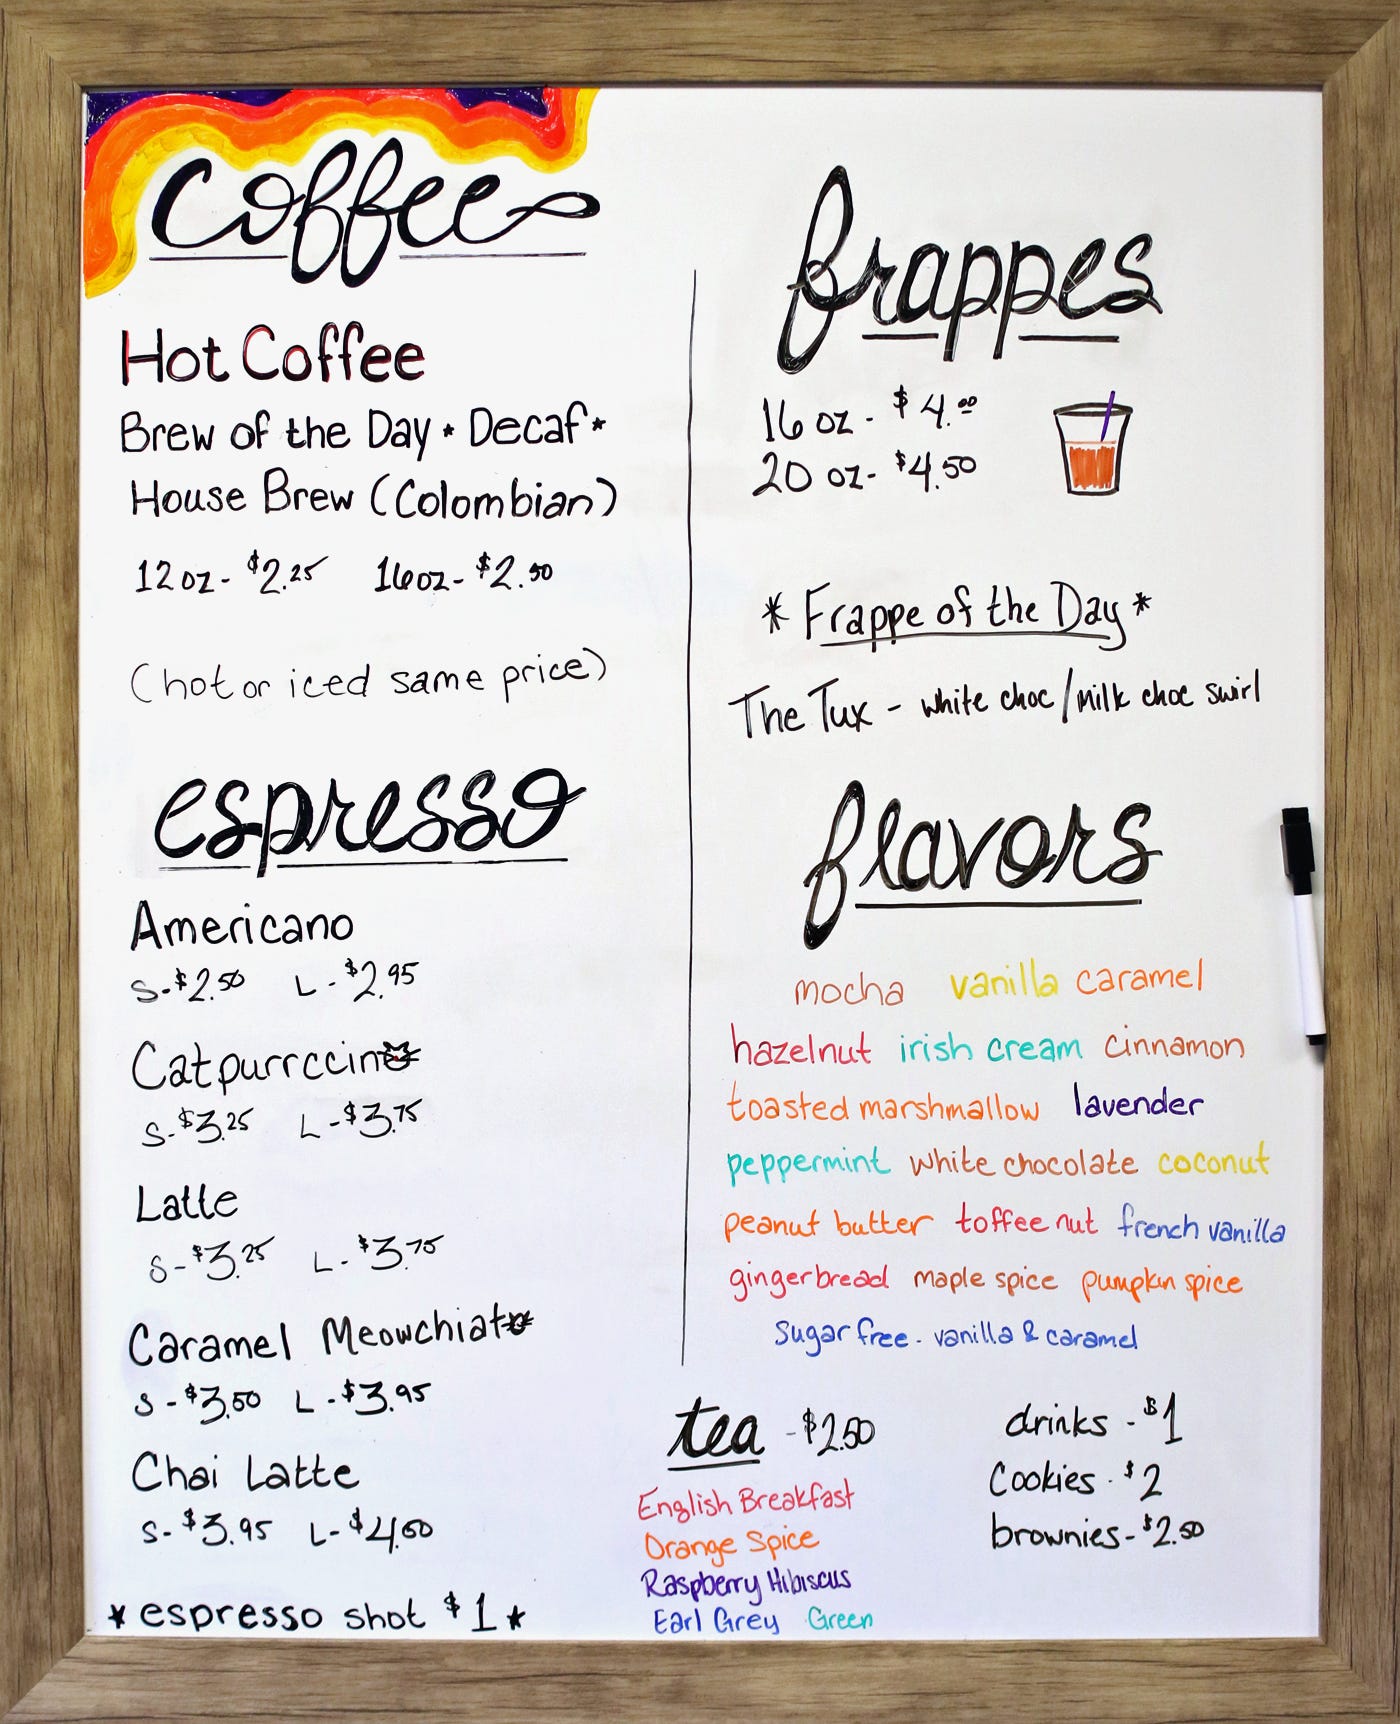 coffee
Hot Coffee
Brew of the Day * Decaf *
House Brew (Colombian)
12 oz - $2.25 16 oz - $2.50
(hot or iced same price)
espresso
Americano
S - $2.50 L - $2.95
Catpurrccino
S - $3.25 L - $3.75
Latte
S - $3.25 L - $3.75
Caramel Meowchiato
S - $3.50 L - $3.95
Chai Latte
S - $3.95 L - $4.50
* espresso shot $1 *
frappes
16 oz - $4.00
20 oz - $4.50
* Frappe of the Day *
The Tux - white choc/milk choc swirl
flavors
mocha vanilla caramel
hazelnut irish cream cinnamon
toasted marshmallow lavender
peppermint white chocolate coconut
peanut butter toffee nut french vanilla
gingerbread maple spice pumpkin spice
sugar free - vanilla & caramel
tea - $2.50
English Breakfast
Orange Spice
Raspberry Hibiscus
Earl Grey Green
drinks - $1
Cookies - $2
brownies - $2.50